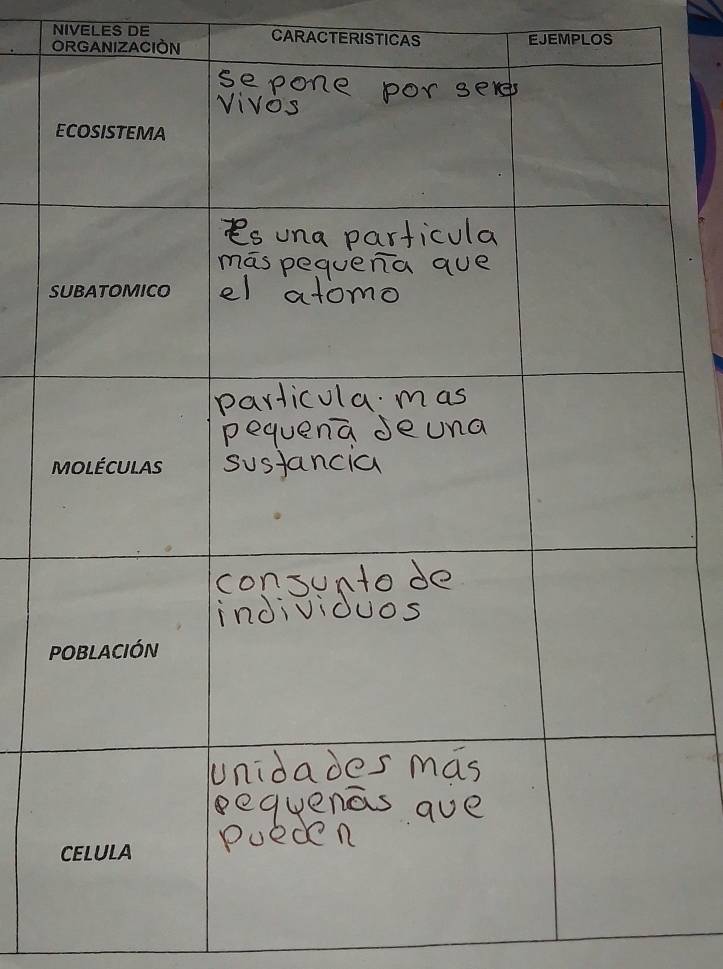 NIVELES DE
ORGANIZACIÒN
CARACTERISTICAS
EJEMPLOS
ECOSISTEMA
se pone por seres
vivos
SUBATOMICO
Es una particula
más pequeña que
el atomo
MOLÉCULAS
particula. mas
pequeña de una
sustancia
POBLACIÓN
consunto de
individuos
CELULA
unidades más
pequeñas que
pueden